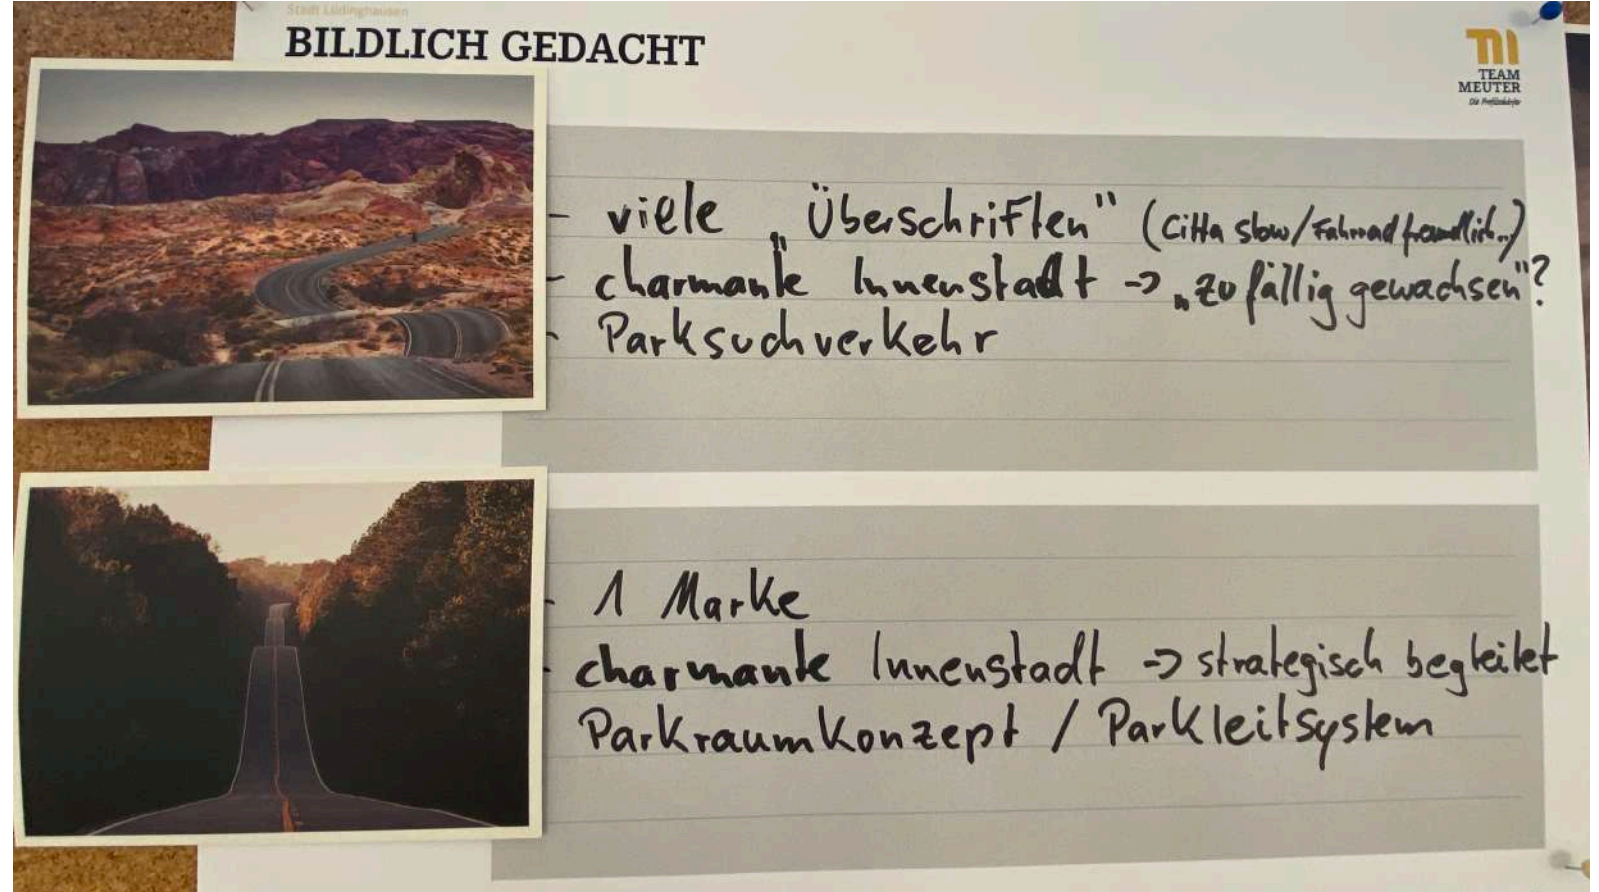 Stadt Lüdinghausen
BILDLICH GEDACHT
TEAM
MEUTER
Die Profilschärfer
- viele „Überschriften“ (Citta slow/Fahrradfreundlich..)
- charmante Innenstadt -> „zufällig gewachsen“?
- Parksuchverkehr
- 1 Marke
- charmante Innenstadt -> strategisch begleitet
Parkraumkonzept / Parkleitsystem